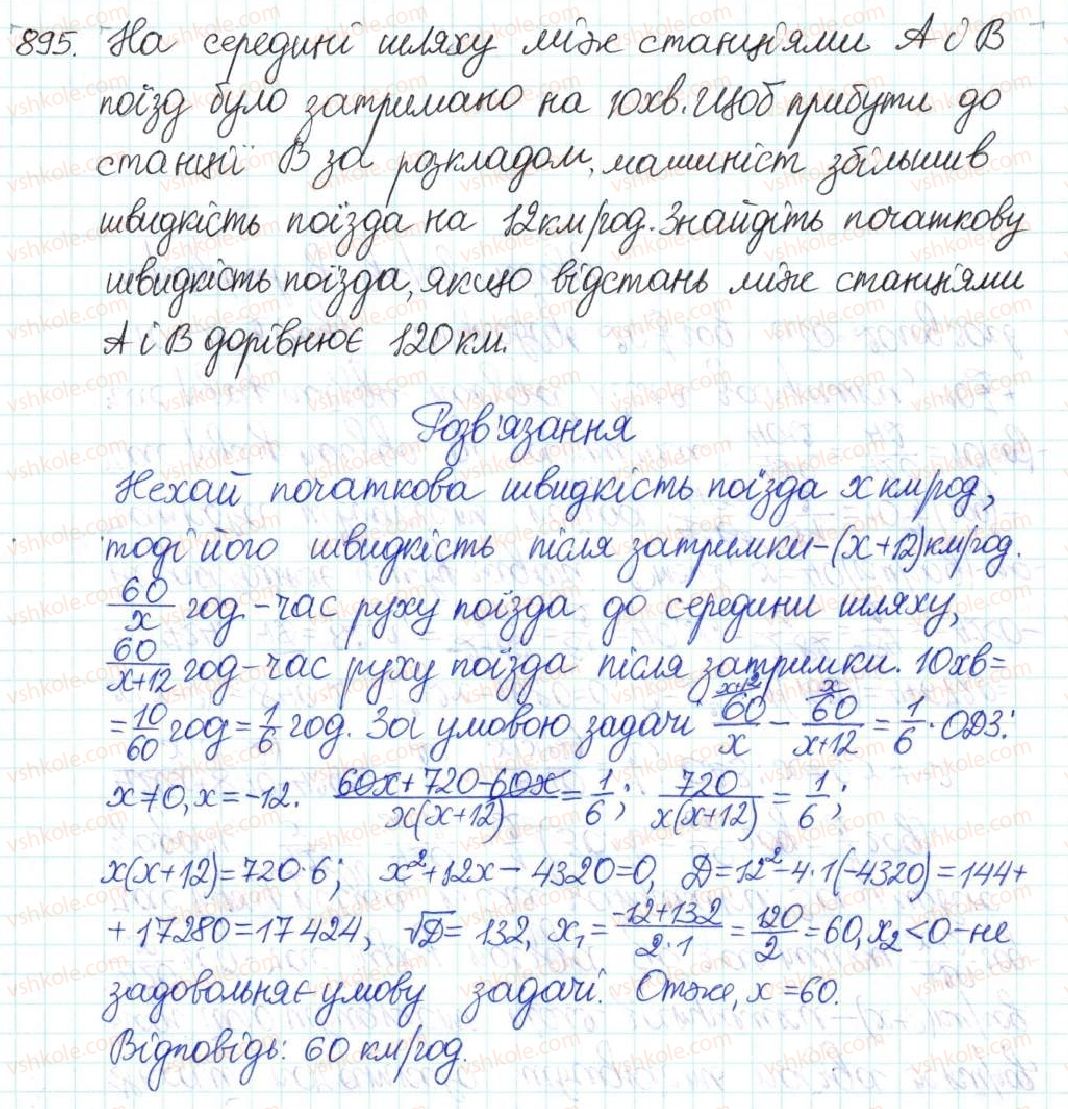 895. На середині шляху між станціями А і В
поїзд було затримано на 10хв. Щоб прибути до
станції В за розкладом, машиніст збільшив
швидкість поїзда на 12км/год. Знайдіть початкову
швидкість поїзда, якщо відстань між станціями
А і В дорівнює 120км.
Розв'язання
Нехай початкова швидкість поїзда х км/год,
тоді його швидкість після затримки-(х+12)км/год.
60/x год-час руху поїзда до середини шляху,
60/(x+12) год-час руху поїзда після затримки. 10хв=
=10/60 год=1/6 год. За умовою задачі 60/x - 60/(x+12) = 1/6. ОДЗ:
x≠0, x=-12. (60x+720-60x)/(x(x+12)) = 1/6; 720/(x(x+12)) = 1/6;
x(x+12)=720·6; x²+12x-4320=0, D=12²-4·1(-4320)=144+
+17280=17424, √D=132, x₁=(-12+132)/(2·1)=120/2=60, x₂<0-не
задовольняє умову задачі. Отже, x=60.
Відповідь: 60 км/год.
vshkole.com